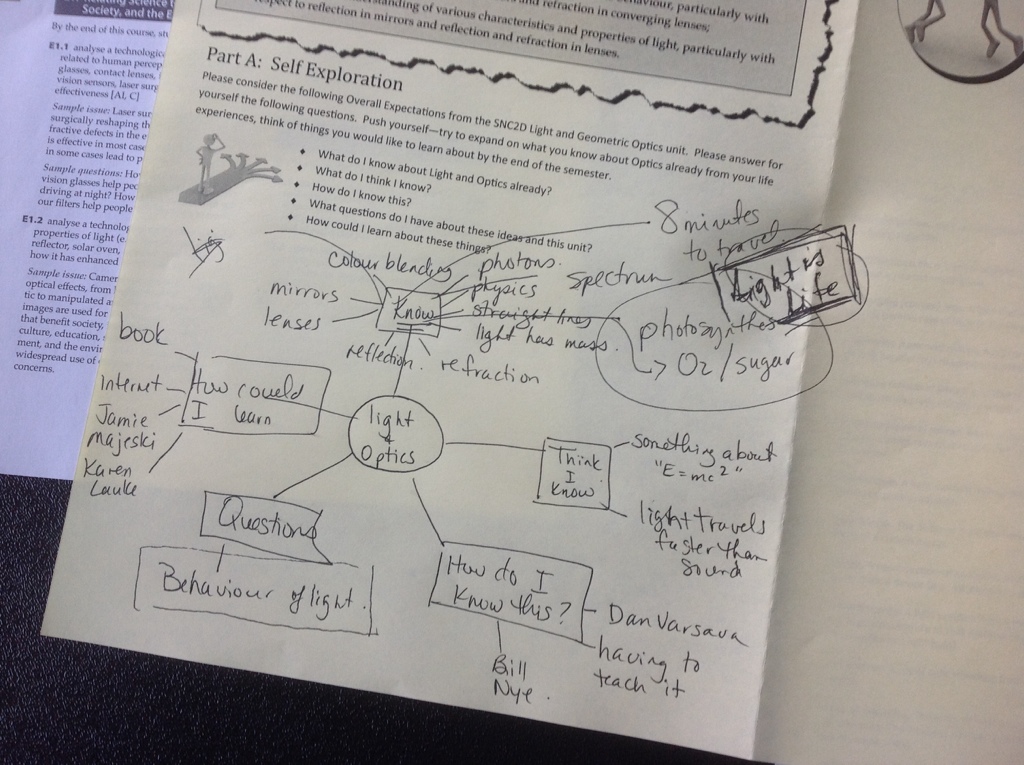 Society, and the E
By the end of this course, stu
E1.1 analyse a technologica
related to human percep
glasses, contact lenses,
vision sensors, laser surg
effectiveness [AI, C]
Sample issue: Laser sur
surgically reshaping th
fractive defects in the e
is effective in most case
in some cases lead to p
Sample questions: Ho
vision glasses help peo
driving at night? How
our filters help people
E1.2 analyse a technolog
properties of light (e.
reflector, solar oven,
how it has enhanced
Sample issue: Camer
optical effects, from
tic to manipulated a
images are used for
that benefit society,
culture, education,
ment, and the envir
widespread use of
concerns.
behaviour, particularly with
and refraction in converging lenses;
standing of various characteristics and properties of light, particularly with
respect to reflection in mirrors and reflection and refraction in lenses.
Part A: Self Exploration
Please consider the following Overall Expectations from the SNC2D Light and Geometric Optics unit. Please answer for
yourself the following questions. Push yourself—try to expand on what you know about Optics already from your life
experiences, think of things you would like to learn about by the end of the semester.
What do I know about Light and Optics already?
What do I think I know?
How do I know this?
What questions do I have about these ideas and this unit?
How could I learn about these things?
8 minutes
to travel
Light is
Life
colour blending
photons.
physics
spectrum
mirrors
lenses
Know
straight lines
light has mass.
photosynthes
→ O2/sugar
reflection.
refraction
book
Internet
Jamie
Majeski
Karen
Lauke
How could
I learn
light
+
Optics
Think
I
Know
something about
"E=mc2"
light travels
faster than
sound
Questions
Behaviour of light.
How do I
Know this?
Dan Varsava
having to
teach it
Bill
Nye.